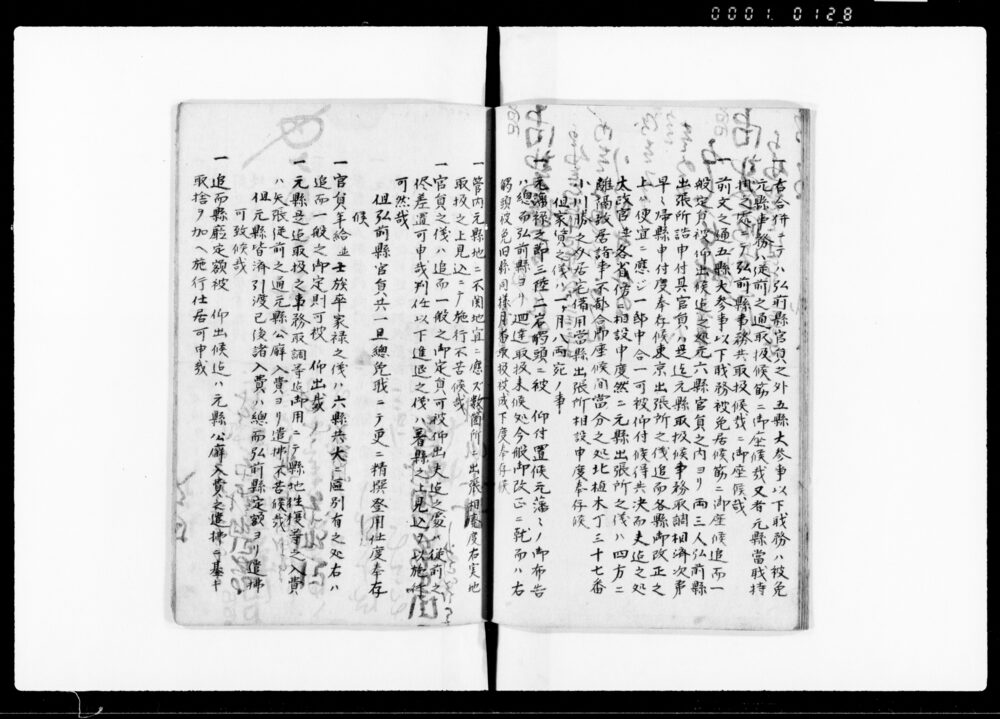 0001 0128
一 右合併ニテハ弘前縣官員之外五縣大参事以下職務ハ被免
元縣事務ハ従前之通取扱候筋ニ御座候哉又者元縣當職持
担之処ニテ弘前縣事務共取扱候哉ニ御座候哉
一 前文之通五縣大参事以下職務被免居候筋ニ御座候追而一
般定員被 仰出候迄之処元六縣官員之内ヨリ両三人弘前縣
出張所詰申付其官員ハ是迄元縣取扱候事務取調相済次第
早々帰縣申付度奉存候東京出張所之儀追而各縣御改正之
上ハ便宜ニ應シ一部中合一可被 仰付候得共決而夫迄之処
太政官並各省傍ニ相設申度然ニ元縣出張所之儀ハ四方ニ
離隔致居諸事不都合即座候間當分之処北植木丁三十七番
小川勝之内居宅借用當縣出張所相設申度奉存候
但家賃之儀ハ一ヶ月八両宛ノ事
一 元藩禄之節三陸二ニ觸頭ニ被 仰付置候元藩々ノ御布告
ハ総而弘前縣ヨリ廻達取扱来候処今般御改正ニ就而ハ右
觸頭被免旧縣同様月番取扱被成下度奉存候
一 管内元縣地ニ不関地宜ニ應ス数箇所ニ出張相建度右実地
取扱之上見込ニテ施行不苦候哉
一 官員之儀ハ追而一般之御定員可被仰出夫迄之處ハ従前之
侭差置可申哉判任以下進退之儀ハ署縣之上見込ヲ以施行
可然哉
但弘前縣官員共一旦総免職ニテ更ニ精撰登用仕度奉存
候
一 官員年給並士族卒家禄之儀ハ六縣共大ニ區別有之処右ハ
追而一般之御定則可被 仰出哉
一 元縣是迄取扱之事務取調等迄御用ニテ縣地往復等之入費
ハ矢張従前之通元縣公廨入費ヨリ遣拂不苦候哉
但元縣皆済引渡已後諸入費ハ総而弘前縣定額ヨリ遣拂
可致候哉
一 追而縣廳定額被 仰出候迄ハ元縣公廨入費之遣拂ニ基キ
取捨ヲ加ヘ施行仕居可申哉